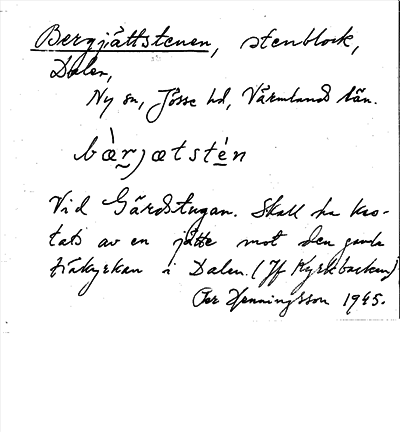 Bergjättstenen, stenblock,
Dalen,
Ny sn, Jösse hd, Värmlands län.
bæ̀r̰jætsté̠n
Vid Gärdstugan. Skall ha kas-
tats av en jätte mot den gamla
träkyrkan i Dalen. (Jf Kyrkbacken)
Per Henningsson 1945.